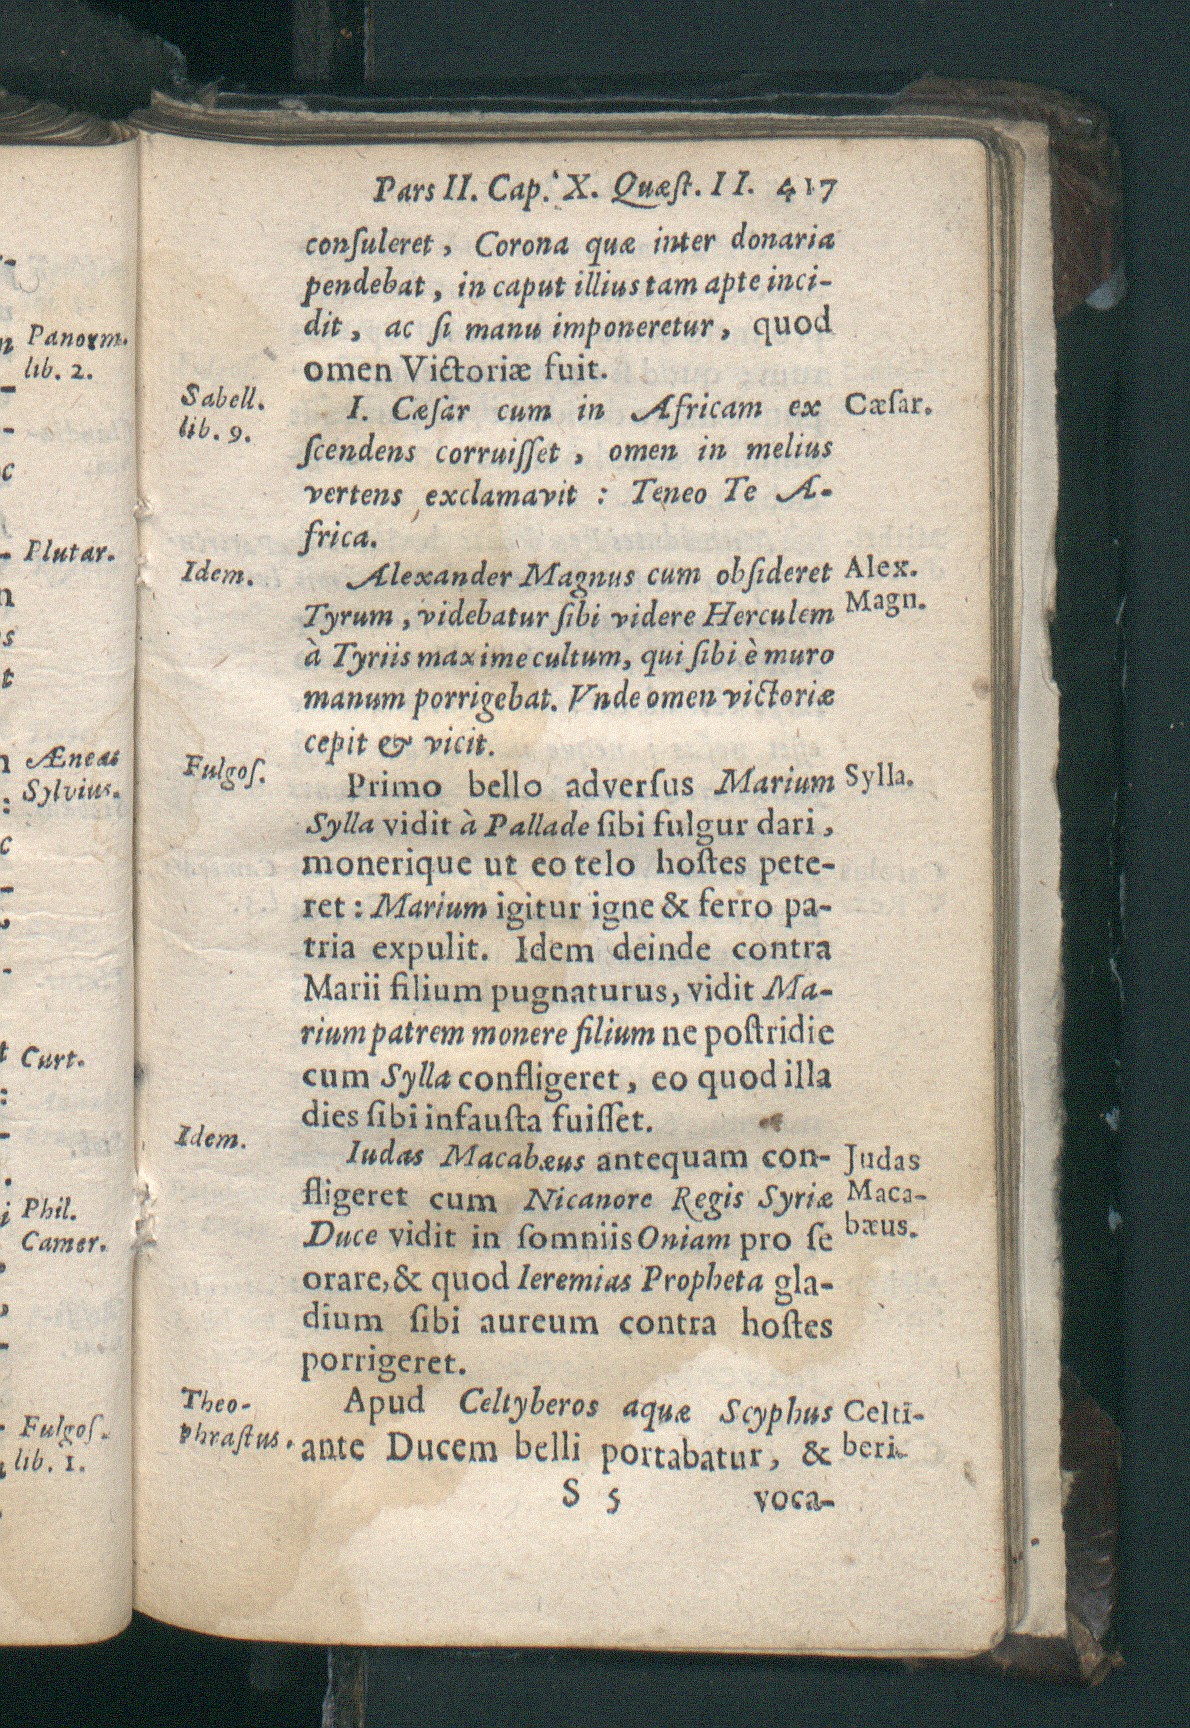 Panorm.
lib. 2.
Plutar.
Æneas
Sylvius.
Curt.
Phil.
Camer.
Fulgoſ.
lib. 1.
Pars II. Cap. X. Quæſt. II. 417
conſuleret, Corona quæ inter donaria
pendebat, in caput illius tam apte inci-
dit, ac ſi manu imponeretur, quod
omen Victoriæ fuit.
Sabell.
lib. 9.
I. Cæſar cum in Africam ex
Cæſar.
ſcendens corruiſſet, omen in melius
vertens exclamavit : Teneo Te A-
frica.
Idem.
Alexander Magnus cum obſideret
Alex.
Magn.
Tyrum, videbatur ſibi videre Herculem
à Tyriis maxime cultum, qui ſibi è muro
manum porrigebat. Vnde omen victoriæ
cepit & vicit.
Fulgoſ.
Primo bello adverſus Marium
Sylla.
Sylla vidit à Pallade ſibi fulgur dari,
monerique ut eo telo hoſtes pete-
ret : Marium igitur igne & ferro pa-
tria expulit. Idem deinde contra
Marii filium pugnaturus, vidit Ma-
rium patrem monere filium ne poſtridie
cum Sylla confligeret, eo quod illa
dies ſibi infauſta fuiſſet.
Idem.
Iudas Macabæus antequam con-
Judas
Maca-
bæus.
fligeret cum Nicanore Regis Syriæ
Duce vidit in ſomniis Oniam pro ſe
orare, & quod Ieremias Propheta gla-
dium ſibi aureum contra hoſtes
porrigeret.
Theo-
phraſtus.
Apud Celtyberos aquæ Scyphus
Celti-
beri.
ante Ducem belli portabatur, &
S 5
voca-